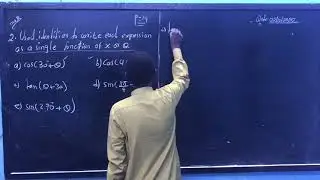 2. Used identities to write each expression
as a single function of x or θ
a) cos(30+θ) b) cos(4
c) tan(θ+30) d) sin(3π/4 -
e) sin(270+θ)
a)